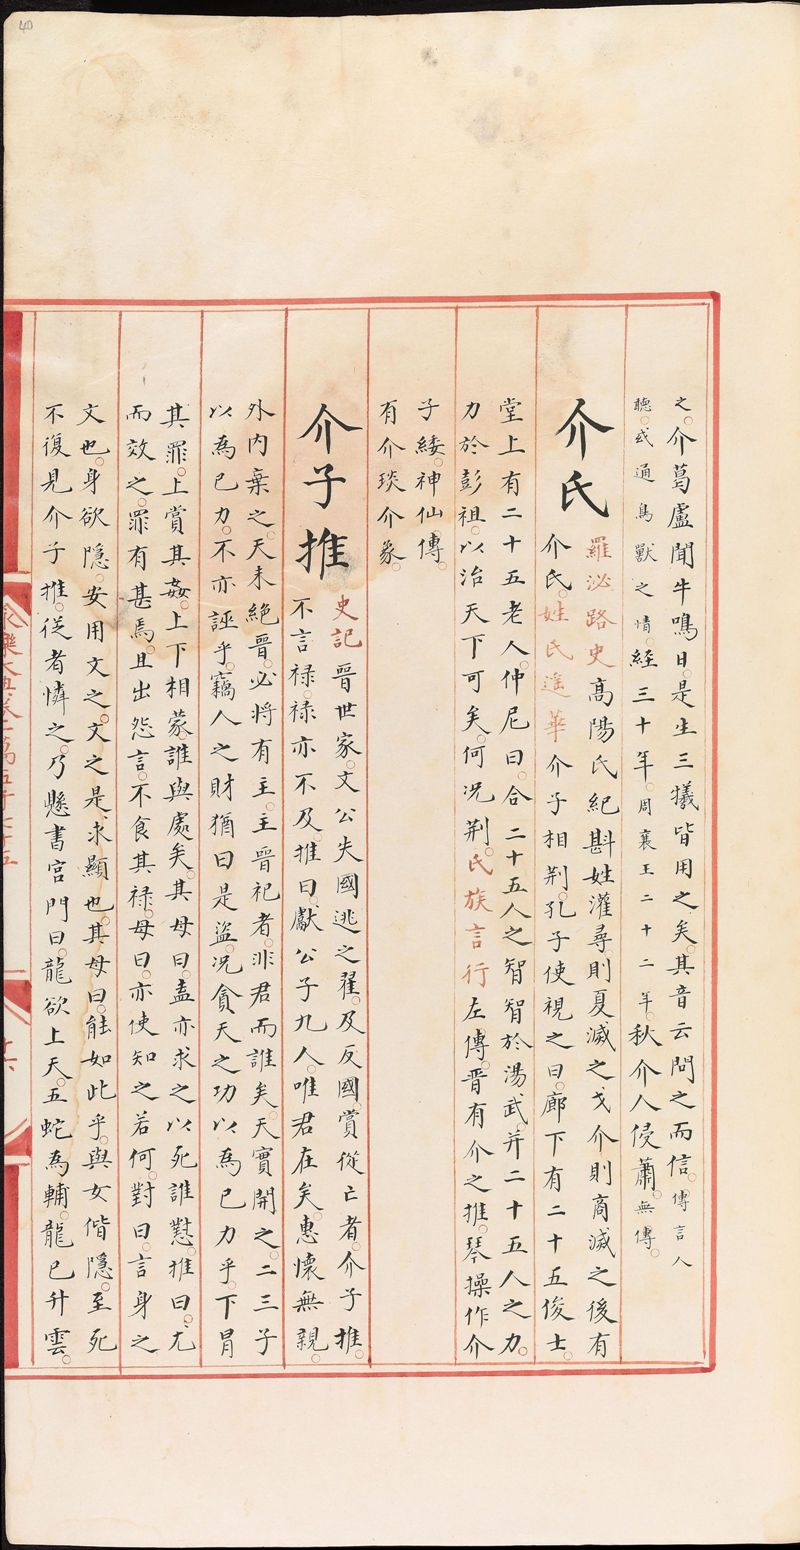 之。介葛盧聞牛鳴曰。是生三犧皆用之矣。其音云問之而信。傳言人
聽。或通鳥獸之情。經三十年。周襄王二十二年。秋介人侵蕭。無傳。
介氏
羅泌路史高陽氏紀斟姓灌尋。則夏滅之戈介則商滅之後有
介氏。姓氏遥華介子相荆。孔子使視之曰。廊下有二十五俊士。
堂上有二十五老人。仲尼曰。合二十五人之智。智於湯武。并二十五人之力。
力於彭祖。以治天下可矣。何况荆。氏族言行左傳。晋有介之推。琴操作介
子綏。神仙傳。
有介琰介象。
介子推
史記晉世家。文公失國逃之翟。及反國。賞從亡者。介子推。
不言禄。禄亦不及。推曰。獻公子九人。唯君在矣。惠懷無親。
外内棄之。天未絶晉。必將有主。主晉祀者。非君而誰矣。天實開之。二三子
以為已力。不亦誣乎。竊人之財猶曰是盜。况貪天之功以為已力乎。下冒
其罪。上賞其姦。上下相蒙。誰與處矣。其母曰。盍亦求之以死誰懟。推曰。尤
而效之。罪有甚焉。且出怨言。不食其禄。母曰。亦使知之若何。對曰。言身之
文也。身欲隱。安用文之。文之是求顯也。其母曰。能如此乎。與女偕隱。至死
不復見介子推。從者憐之。乃懸書宫門曰。龍欲上天。五蛇為輔。龍已升雲。
永樂大典卷一萬五千七十五
十六
40